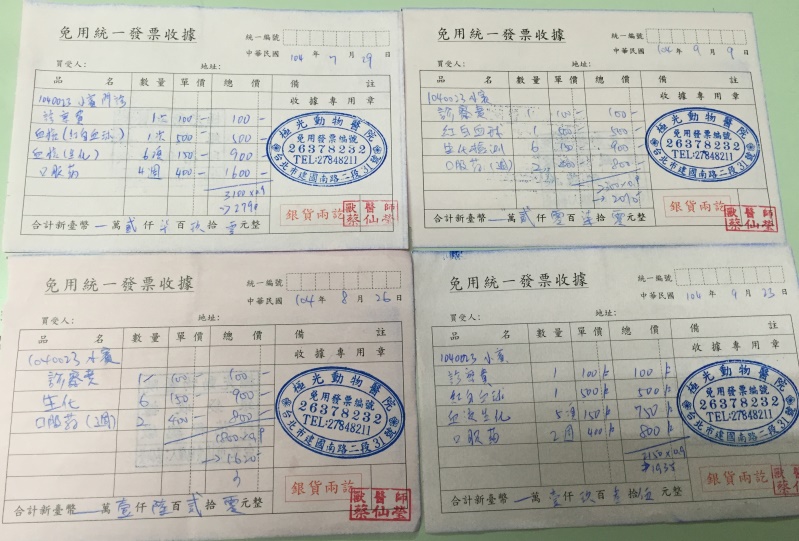 免用統一發票收據
統一編號
中華民國 104 年 7 月 29 日
買受人： 地址：
品 名 數量 單價 總價 備註
1040023 小賓 門診
收據專用章
診察費 1次 100 100
血檢(紅白血球) 1次 500 500
血檢(生化) 6項 150 900
口服葯 4週 400 1600
3100x0.9
→2790
極光動物醫院
免用發票編號
26378232
TEL:27848211
台北市建國南路二段31號
銀貨兩訖
獸醫師
蔡仙瑩
合計新臺幣 萬 貳 仟 柒 百 玖 拾 零 元整
免用統一發票收據
統一編號
中華民國 104 年 9 月 9 日
買受人： 地址：
品 名 數量 單價 總價 備註
1040023 小賓
收據專用章
診察費 1 100 100
紅白血球 1 500 500
生化檢測 6 150 900
口服葯(2週) 2 800
2300x0.9
→2070
極光動物醫院
免用發票編號
26378232
TEL:27848211
台北市建國南路二段31號
銀貨兩訖
獸醫師
蔡仙瑩
合計新臺幣 萬 貳 仟 零 百 柒 拾 零 元整
免用統一發票收據
統一編號
中華民國 104 年 8 月 26 日
買受人： 地址：
品 名 數量 單價 總價 備註
1040023 小賓
收據專用章
診察費 1 100 100
生化 6 150 900
口服葯(2週) 2 400 800
1800x0.9
→1620
極光動物醫院
免用發票編號
26378232
TEL:27848211
台北市建國南路二段31號
銀貨兩訖
獸醫師
蔡仙瑩
合計新臺幣 萬 壹 仟 陸 百 貳 拾 零 元整
免用統一發票收據
統一編號
中華民國 104 年 9 月 23 日
買受人： 地址：
品 名 數量 單價 總價 備註
1040023 小賓
收據專用章
診察費 1 100 100
紅白血球 1 500 500
血液生化 5項 150 750
口服葯 2週 400 800
2150x0.9
1935
極光動物醫院
免用發票編號
26378232
TEL:27848211
台北市建國南路二段31號
銀貨兩訖
獸醫師
蔡仙瑩
合計新臺幣 萬 壹 仟 玖 百 參 拾 伍 元整